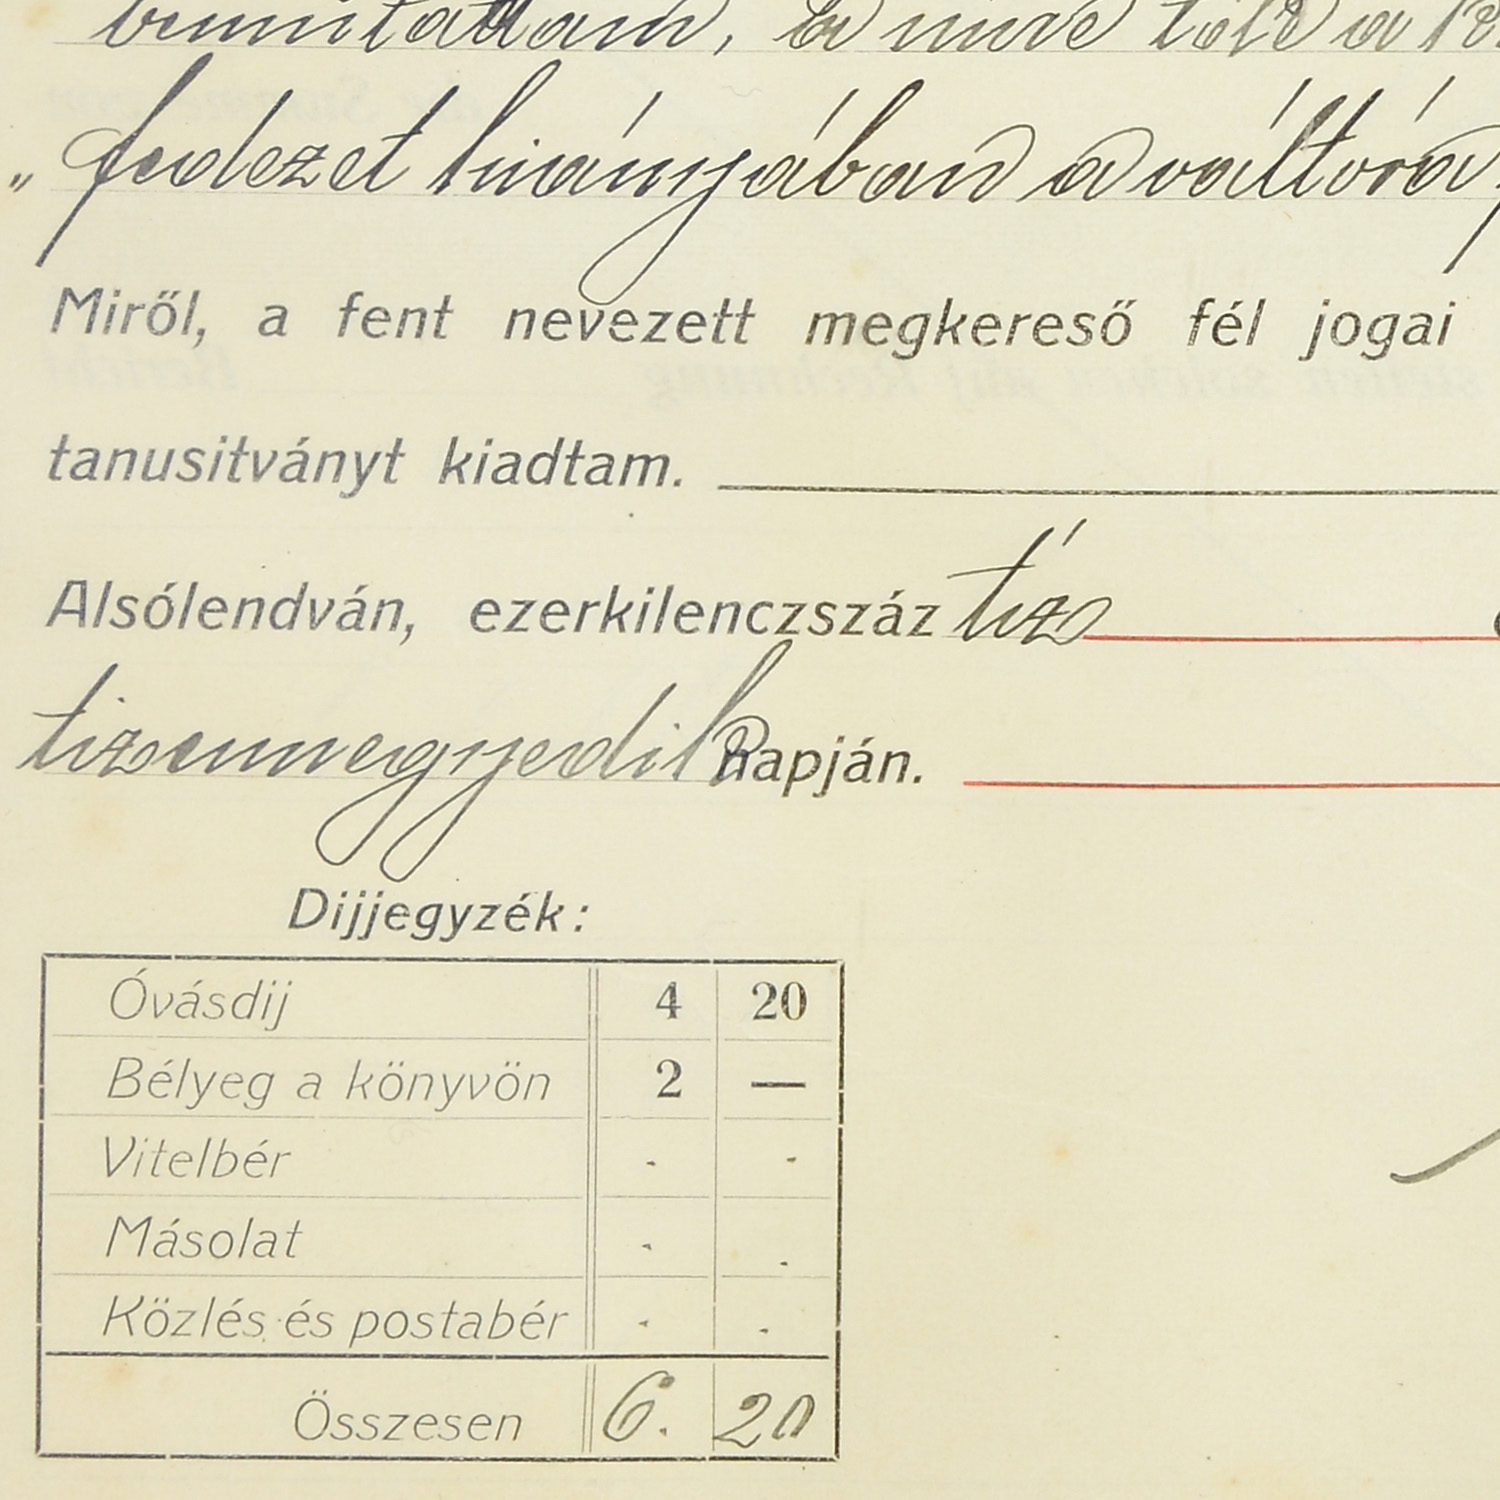 bemutattam, a mire tőle a
„fedezet hiányában a váltóra
Miről, a fent nevezett megkereső fél jogai
tanusitványt kiadtam.
Alsólendván, ezerkilenczszáz tíz
tizennegyedik napján.
Dijjegyzék:
Óvásdij 4 20
Bélyeg a könyvön 2 —
Vitelbér . .
Másolat . .
Közlés és postabér . .
Összesen 6. 20